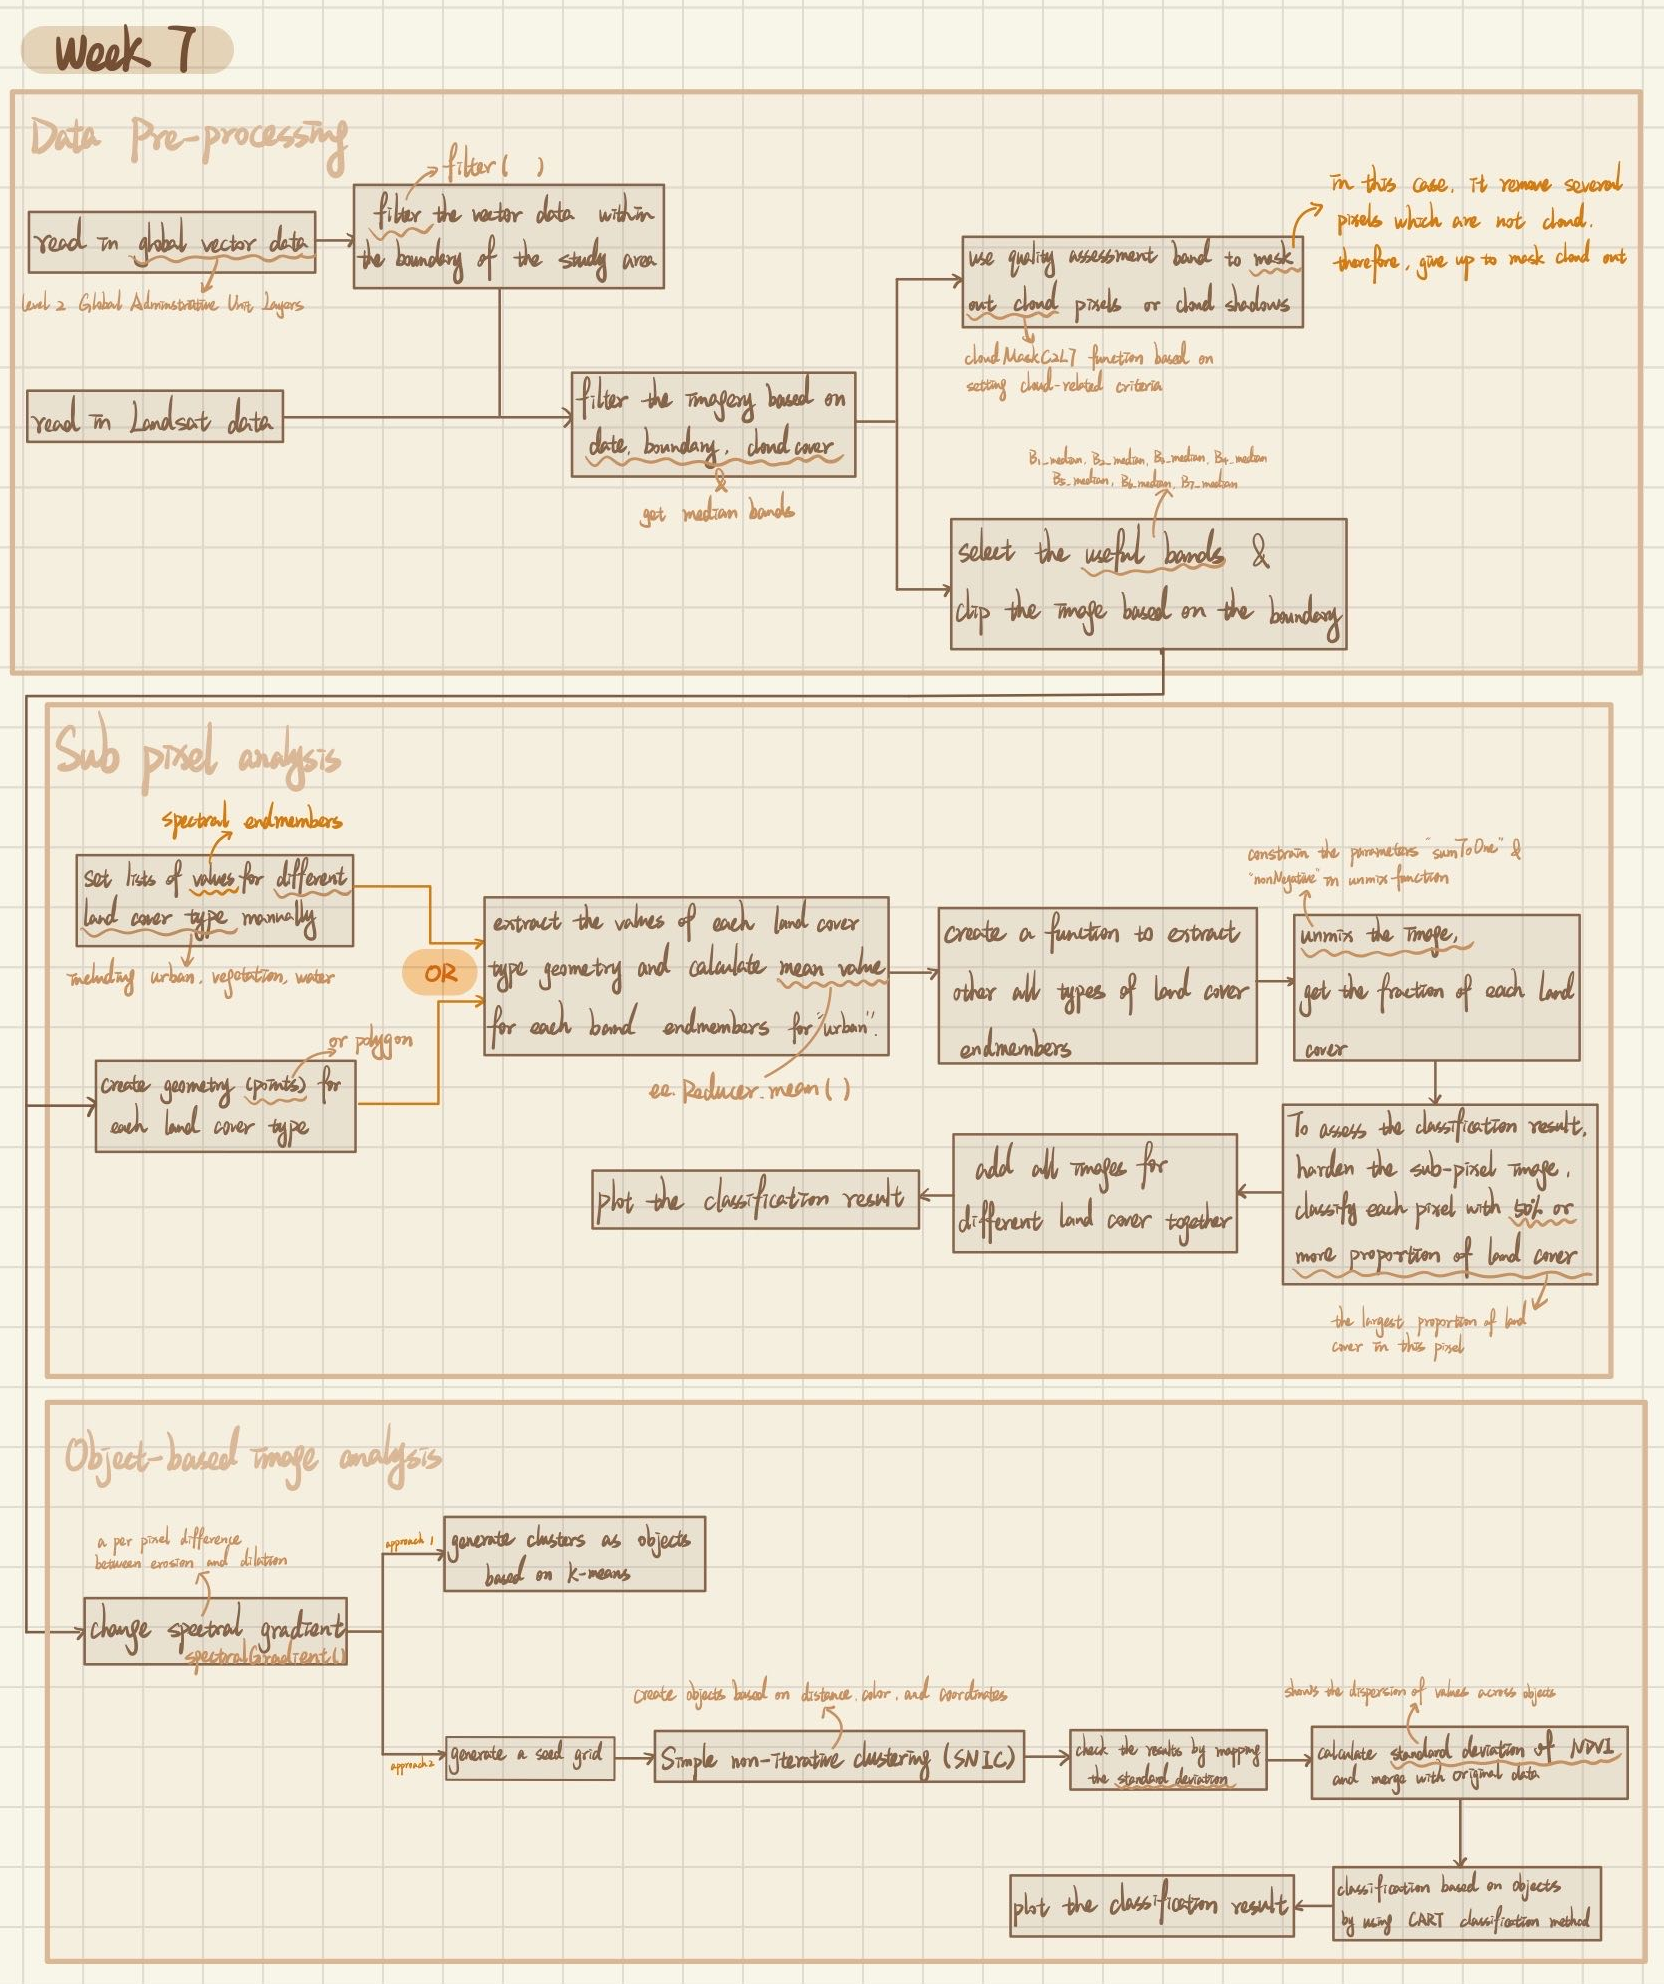 Week 7
Data Pre-processing
filter( )
read in global vector data
level 2 Global Administrative Unit Layers
filter the vector data within
the boundary of the study area
read in Landsat data
filter the imagery based on
date, boundary, cloud cover
&
get median bands
use quality assessment band to mask
out cloud pixels or cloud shadows
in this case, it remove several
pixels which are not cloud.
therefore, give up to mask cloud out
cloudMaskC2L7 function based on
setting cloud-related criteria
B1_median, B2_median, B3_median, B4_median
B5_median, B6_median, B7_median
select the useful bands &
clip the image based on the boundary
Sub pixel analysis
spectral endmembers
set lists of values for different
land cover type manually
including urban, vegetation, water
OR
or polygon
create geometry (points) for
each land cover type
extract the values of each land cover
type geometry and calculate mean value
for each band endmembers for "urban".
ee.Reducer.mean( )
create a function to extract
other all types of land cover
endmembers
constrain the parameters "sumToOne" &
"nonNegative" in unmix function
unmix the image,
get the fraction of each land
cover
To assess the classification result,
harden the sub-pixel image,
classify each pixel with 50% or
more proportion of land cover
the largest proportion of land
cover in this pixel
add all images for
different land cover together
plot the classification result
Object-based image analysis
a per pixel difference
between erosion and dilation
change spectral gradient
spectralGradient()
approach 1
generate clusters as objects
based on k-means
approach 2
generate a seed grid
create objects based on distance, color, and coordinates
Simple non-iterative clustering (SNIC)
check the results by mapping
the standard deviation
shows the dispersion of values across objects
calculate standard deviation of NDVI
and merge with original data
classification based on objects
by using CART classification method
plot the classification result